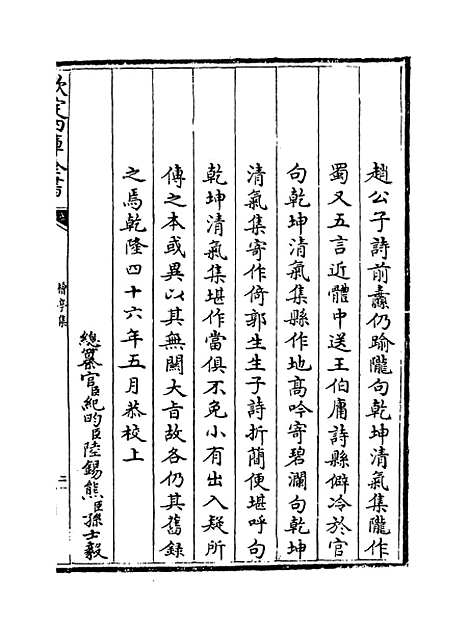 趙公子詩前纛仍踰隴句乾坤清氣集隴作
蜀又五言近體中送王伯庸詩縣僻冷於官
句乾坤清氣集縣作地高吟寄碧瀾句乾坤
清氣集寄作倚郭生生子詩折簡便堪呼句
乾坤清氣集堪作當俱不免小有出入疑所
傳之本或異以其無關大旨故各仍其舊録
之焉乾隆四十六年五月恭校上
總纂官臣紀昀臣陸錫熊臣孫士毅
欽定四庫全書